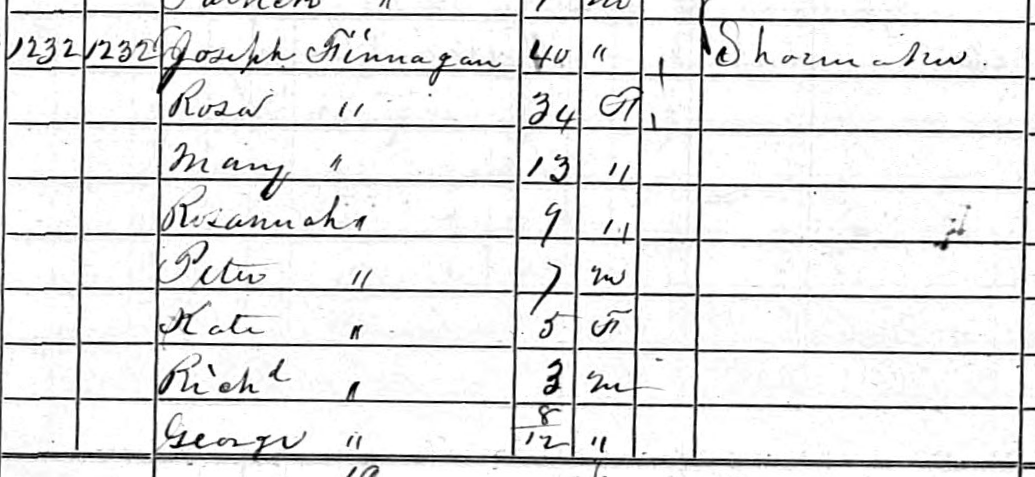 1232 1232 Joseph Finnagan 40 " Shoemaker
Rosa " 34 F
Mary " 13 "
Rosannah " 9 "
Peter " 7 m
Kate " 5 F
Rich^d " 3 m
George " 8/12 "